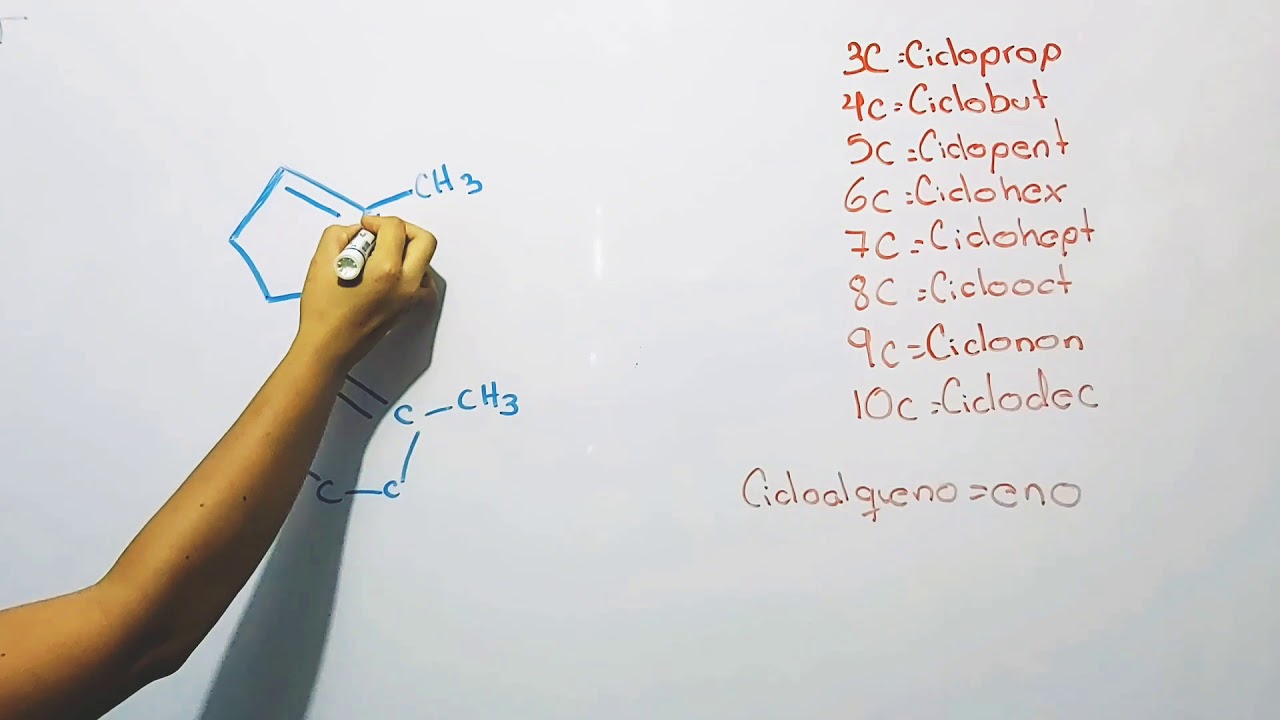 CH3
C-CH3
C-C
3C=Cicloprop
4C=Ciclobut
5C=Ciclopent
6C=Ciclohex
7C=Ciclohept
8C=Ciclooct
9C=Ciclonon
10C=Ciclodec
Cicloalqueno=eno